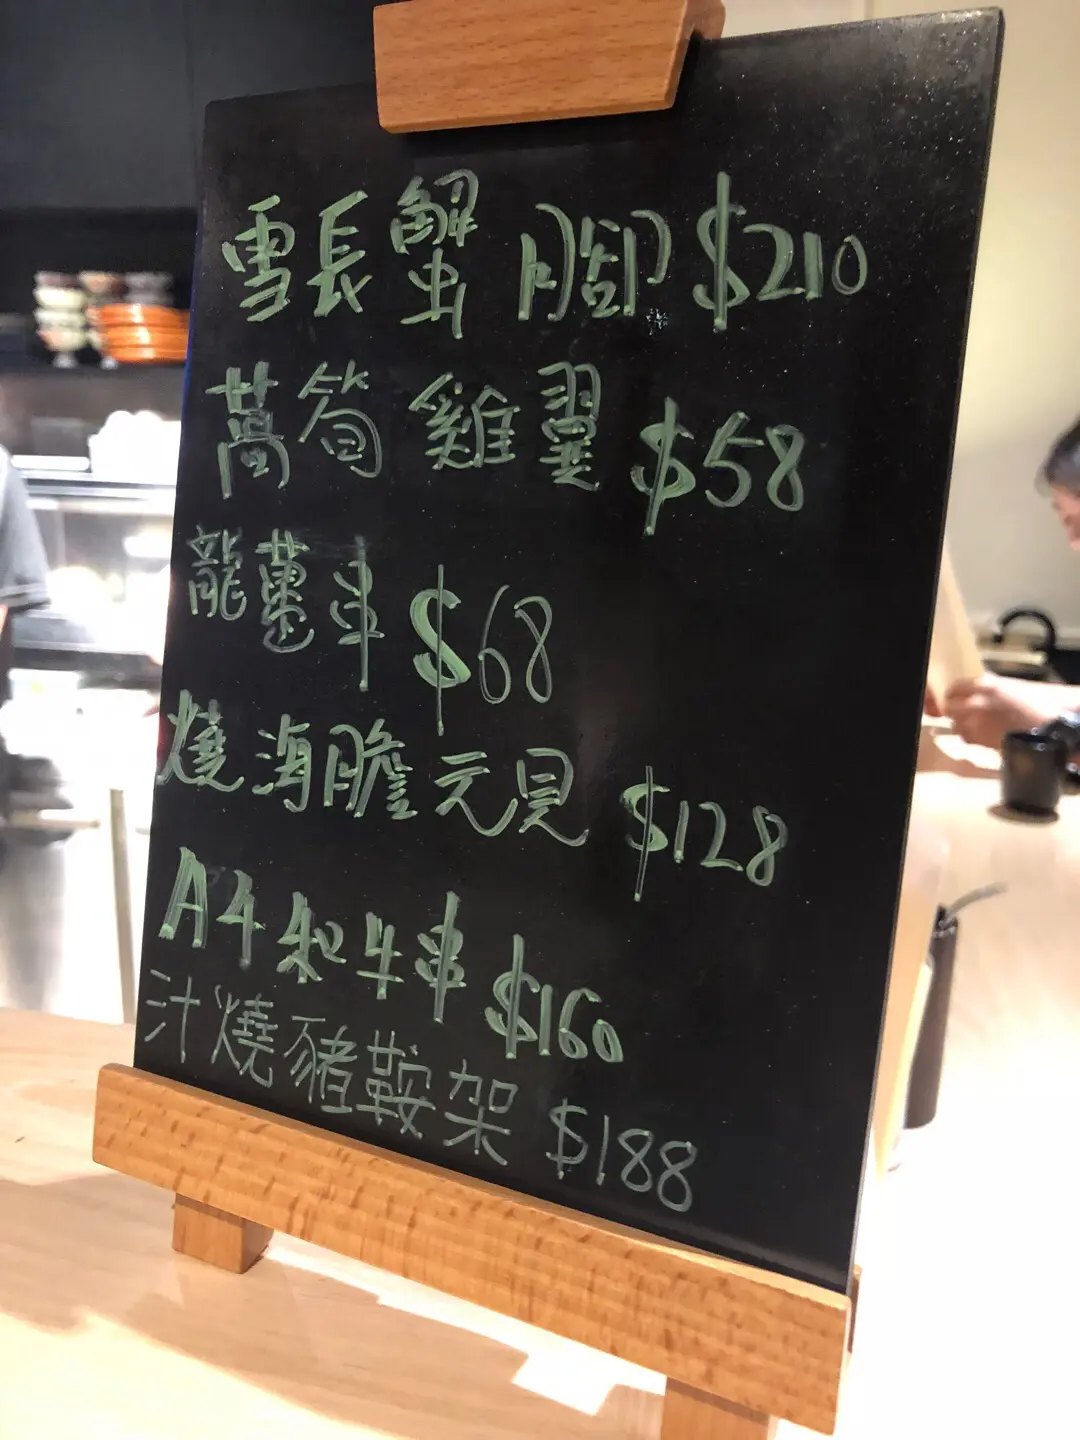 雪長蟹腳 $210
萵筍雞翼 $58
龍躉串 $68
燒海膽元貝 $128
A4和牛串 $160
汁燒豬鞍架 $188